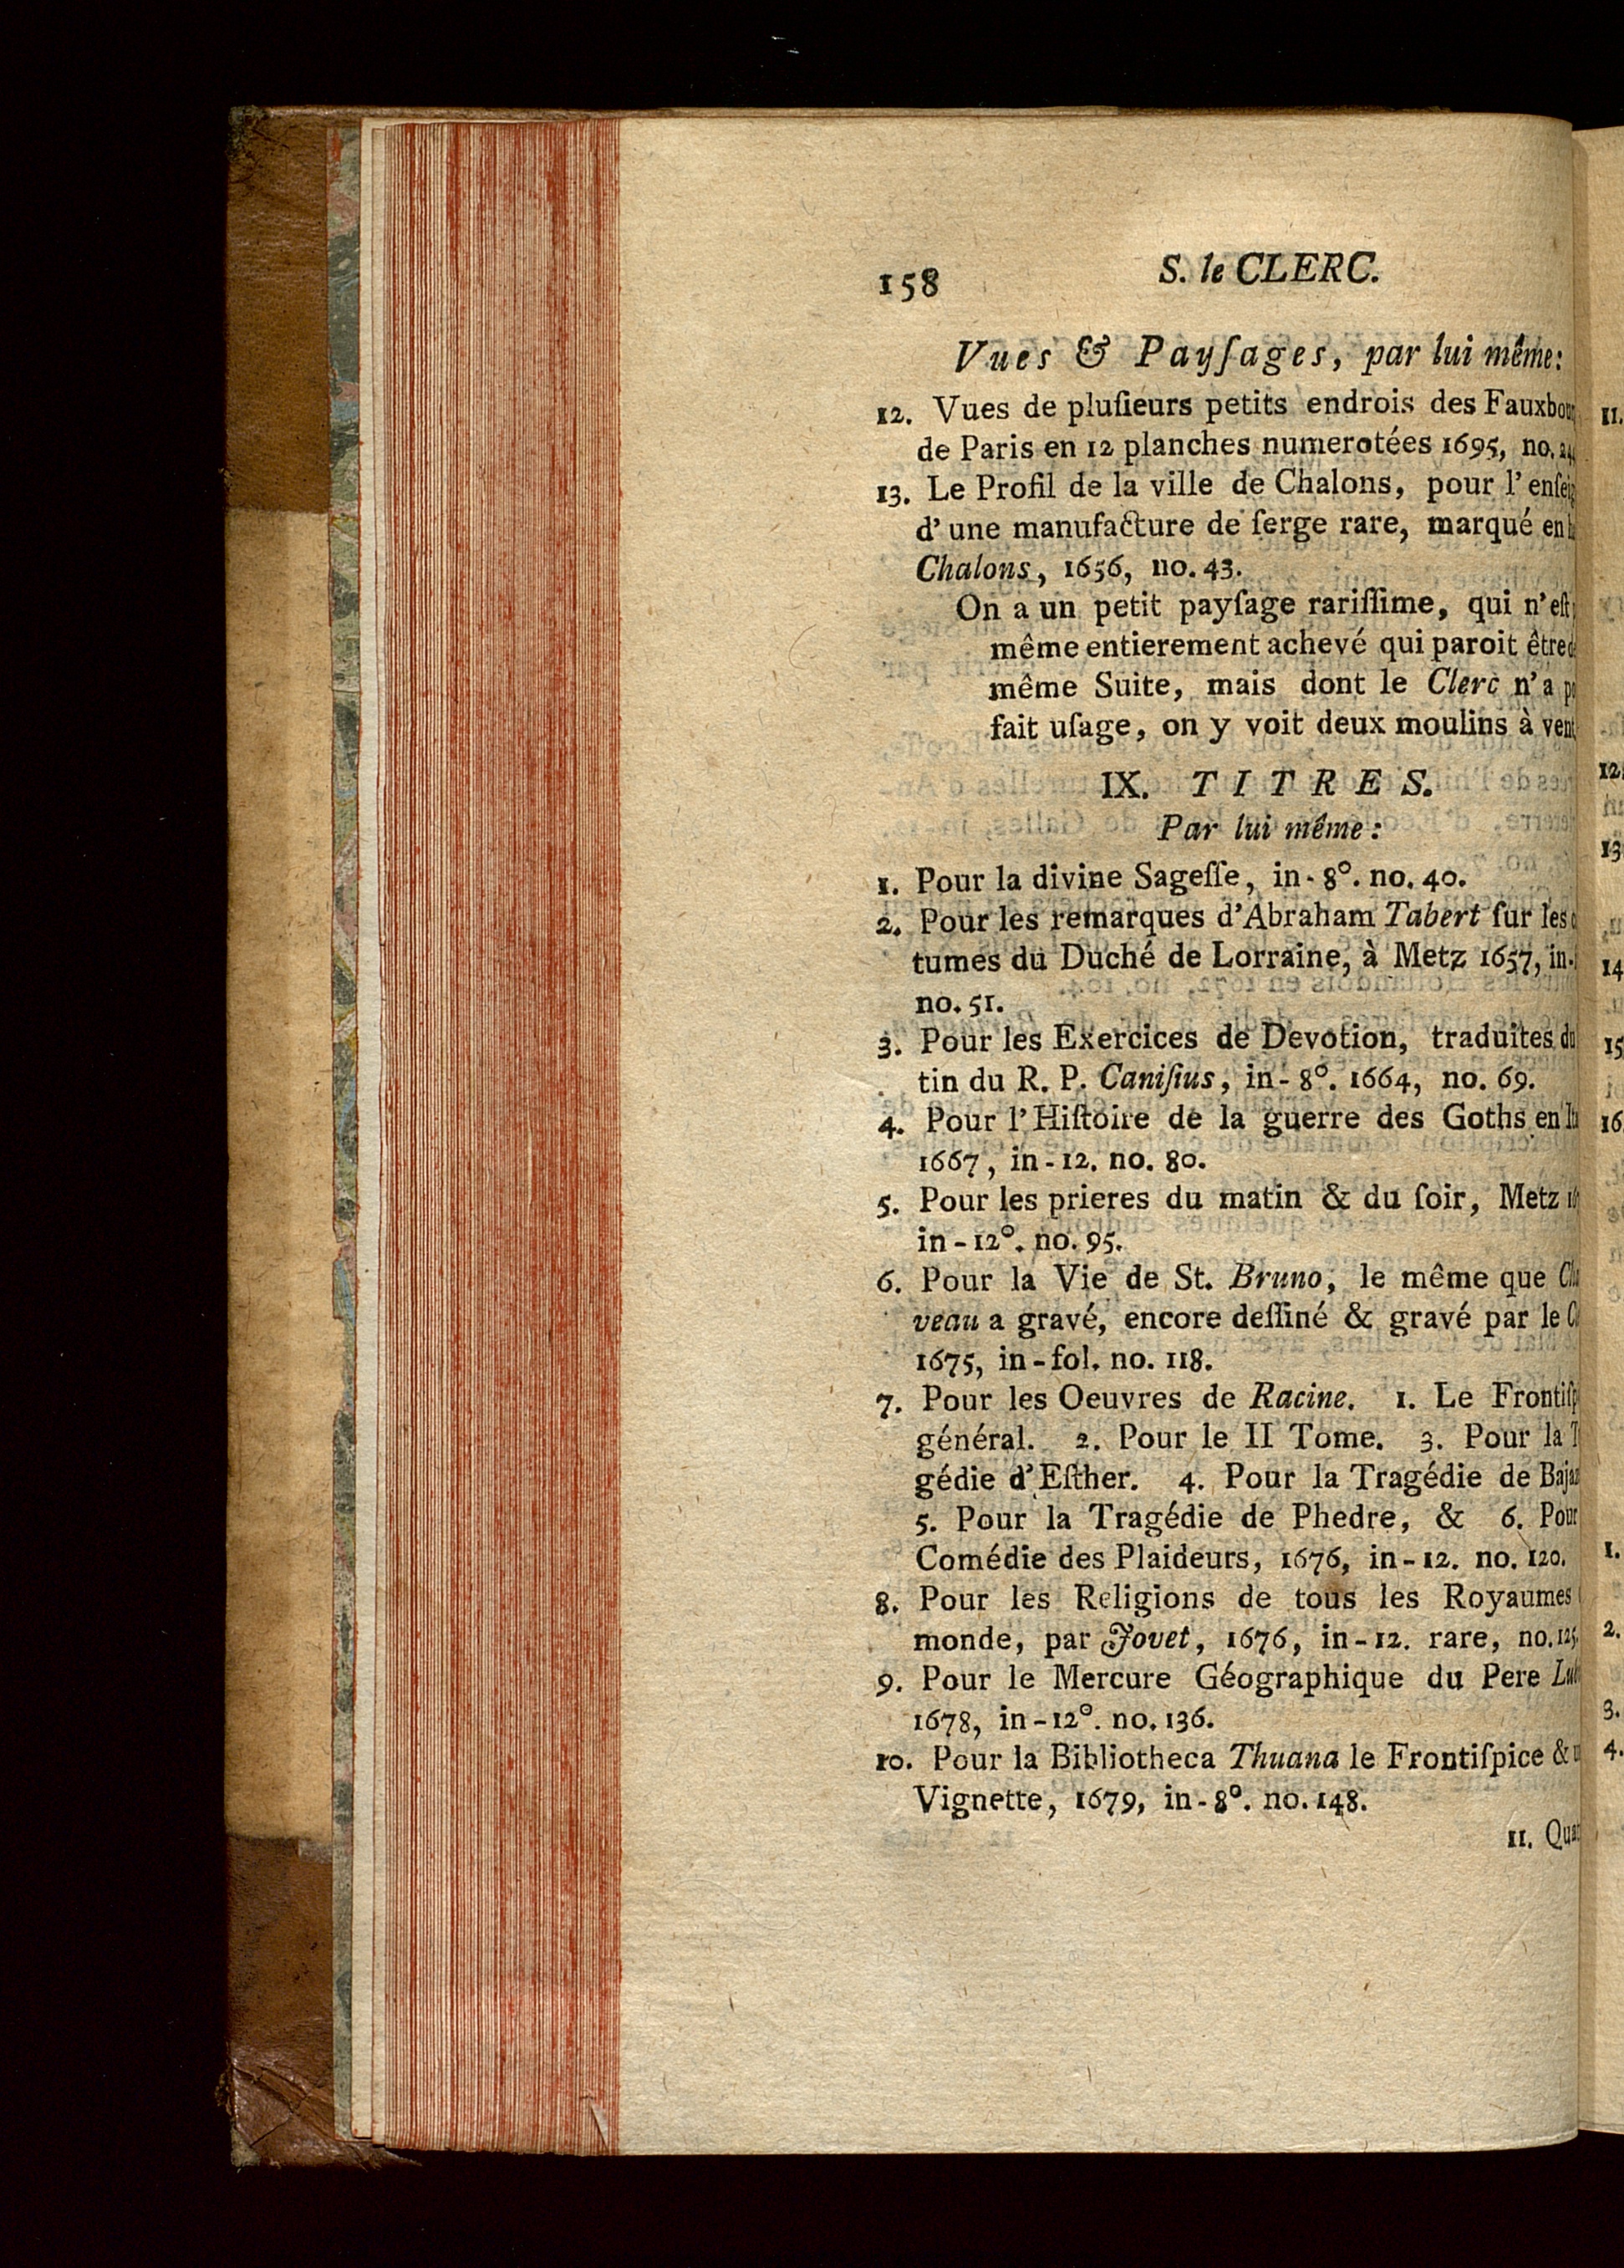 158
S. le CLERC.
Vues & Payſages, par lui même:
12. Vues de pluſieurs petits endrois des
de Paris en 12 planches numerotées 1695, no.
13. Le Profil de la ville de Chalons, pour l'
d'une manufacture de ſerge rare, marqué en
Chalons, 1656, no. 43.
On a un petit payſage rariſſime, qui n'eſt
même entierement achevé qui paroit être
même Suite, mais dont le Clerc n'a
fait uſage, on y voit deux moulins à
IX. TITRES.
Par lui même:
1. Pour la divine Sageſſe, in-8°. no. 40.
2. Pour les remarques d'Abraham Tabert ſur les
tumes du Duché de Lorraine, à Metz 1657,
no. 51.
3. Pour les Exercices de Devotion, traduites du
tin du R. P. Caniſius, in-8°. 1664, no. 69.
4. Pour l'Hiſtoire de la guerre des Goths en
1667, in-12. no. 80.
5. Pour les prieres du matin & du ſoir, Metz
in-12°. no. 95.
6. Pour la Vie de St. Bruno, le même que
veau a gravé, encore deſſiné & gravé par le
1675, in-fol. no. 118.
7. Pour les Oeuvres de Racine. 1. Le
général. 2. Pour le II Tome. 3. Pour la
gédie d'Eſther. 4. Pour la Tragédie de
5. Pour la Tragédie de Phedre, & 6. Pour
Comédie des Plaideurs, 1676, in-12. no. 120.
8. Pour les Religions de tous les Royaumes
monde, par Jovet, 1676, in-12. rare, no. 125.
9. Pour le Mercure Géographique du Pere
1678, in-12°. no. 136.
10. Pour la Bibliotheca Thuana le Frontiſpice &
Vignette, 1679, in-8°. no. 148.
11.
11.
12.
13
14
15
16
1.
2.
3.
4.